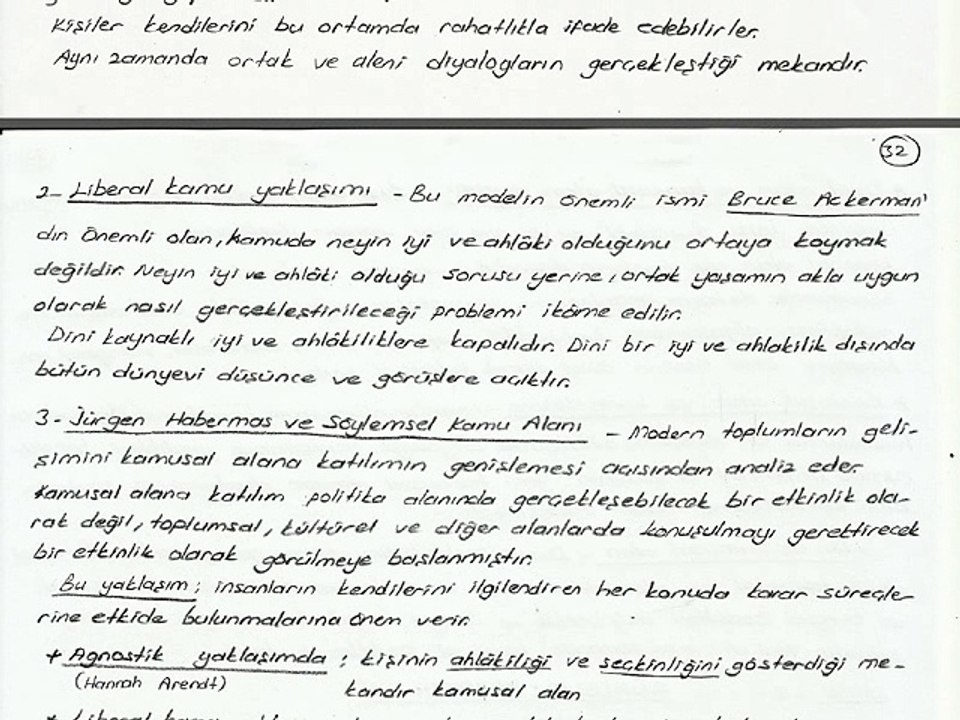 Kişiler kendilerini bu ortamda rahatlıkla ifade edebilirler.
Aynı zamanda ortak ve aleni diyalogların gerçekleştiği mekandır.
32
2- Liberal kamu yaklaşımı - Bu modelin önemli ismi Bruce Ackerman'
dır. Önemli olan, kamuda neyin iyi ve ahlâki olduğunu ortaya koymak
değildir. Neyin iyi ve ahlâki olduğu sorusu yerine, ortak yaşamın akla uygun
olarak nasıl gerçekleştirileceği problemi ikâme edilir.
Dini kaynaklı iyi ve ahlâkiliklere kapalıdır. Dini bir iyi ve ahlakilik dışında
bütün dünyevi düşünce ve görüşlere açıktır.
3- Jürgen Habermas ve Söylemsel Kamu Alanı - Modern toplumların geli-
şimini kamusal alana katılımın genişlemesi açısından analiz eder.
Kamusal alana katılım politika alanında gerçekleşebilecek bir etkinlik ola-
rak değil, toplumsal, kültürel ve diğer alanlarda konuşulmayı gerektirecek
bir etkinlik olarak görülmeye başlanmıştır.
Bu yaklaşım; insanların kendilerini ilgilendiren her konuda karar süreçle-
rine etkide bulunmalarına önem verir.
+ Agnostik yaklaşımda ; kişinin ahlâkiliği ve seçkinliğini gösterdiği me-
(Hannah Arendt) kandır kamusal alan